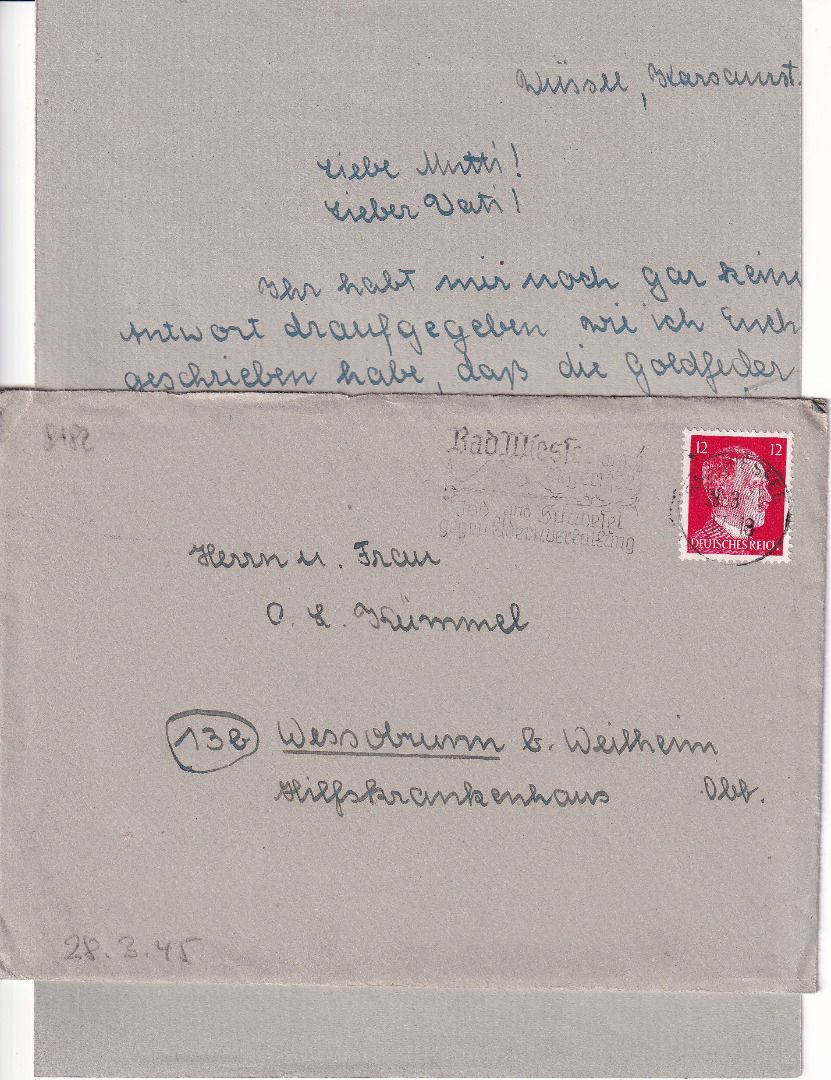 Liebe Mutti!
Lieber Vati!
Ihr habt mir noch gar kein
Antwort draufgegeben wie ich Euch
geschrieben habe, daß die Goldfeder
Bad Wies
und
gegen Adernverkalkung
12 12
DEUTSCHES REICH
Herrn u. Frau
O. L. Kümmel
13b Wessobrunn b. Weilheim
Hilfskrankenhaus Obb.
28.3.45